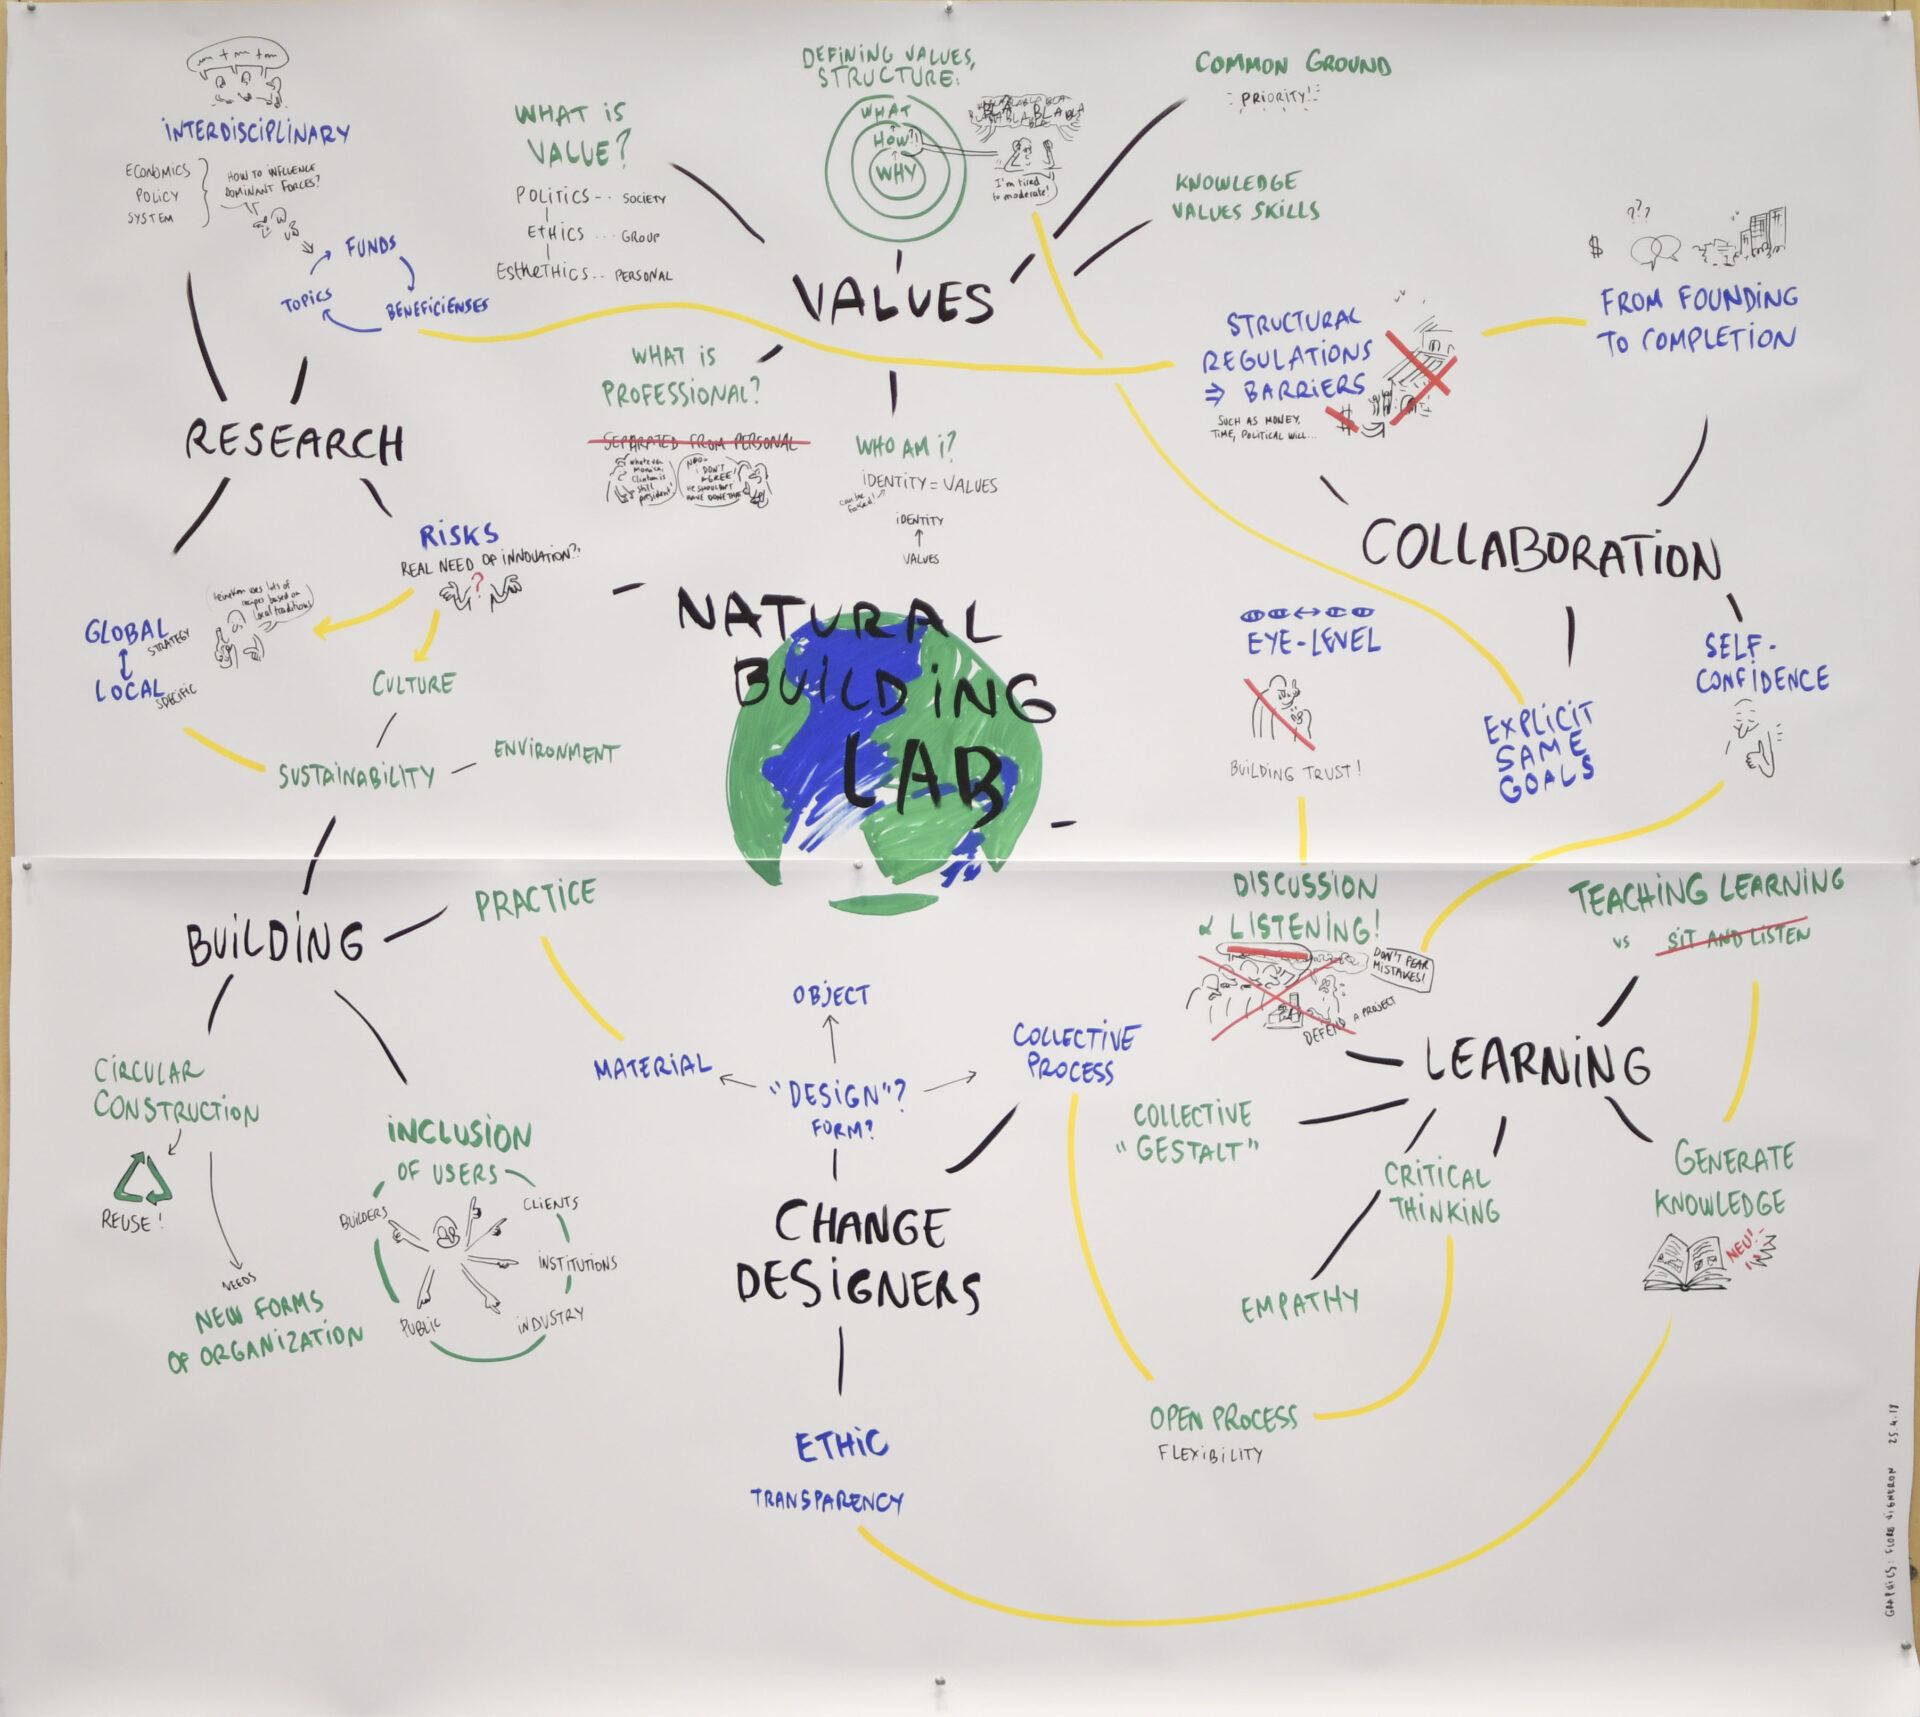 INTERDISCIPLINARY
ECONOMICS
POLICY
SYSTEM
HOW TO INFLUENCE
DOMINANT FORCES?
FUNDS
TOPICS
BENEFICIENSES
RESEARCH
RISKS
REAL NEED OF INNOVATION?
?
GLOBAL
STRATEGY
LOCAL
SPECIFIC
lots of
recipes based on
local traditions
CULTURE
SUSTAINABILITY
ENVIRONMENT
WHAT IS
VALUE?
POLITICS -- SOCIETY
ETHICS ... GROUP
EStheTHICS.. PERSONAL
DEFINING VALUES,
STRUCTURE:
WHAT
HOW?!
WHY
BLA BLA BLA
I'm tired
to moderate!
COMMON GROUND
PRIORITY!
KNOWLEDGE
VALUES SKILLS
VALUES
WHAT IS
PROFESSIONAL?
SEPARATED FROM PERSONAL
whatever
Monica,
Clinton is
still
president!
NOO-
I DON'T
AGREE!
HE SHOULDN'T
HAVE DONE THAT
WHO AM I?
IDENTITY = VALUES
can be
forced!
IDENTITY
VALUES
NATURAL
BUILDING
LAB
???
$
FROM FOUNDING
TO COMPLETION
STRUCTURAL
REGULATIONS
⇒ BARRIERS
SUCH AS MONEY,
TIME, POLITICAL WILL...
$
COLLABORATION
EYE-LEVEL
BUILDING TRUST!
EXPLICIT
SAME
GOALS
SELF-
CONFIDENCE
BUILDING
PRACTICE
CIRCULAR
CONSTRUCTION
REUSE!
NEEDS
NEW FORMS
OF ORGANIZATION
INCLUSION
OF USERS
BUILDERS
CLIENTS
INSTITUTIONS
INDUSTRY
PUBLIC
OBJECT
MATERIAL
"DESIGN"?
FORM?
COLLECTIVE
PROCESS
CHANGE
DESIGNERS
ETHIC
TRANSPARENCY
DISCUSSION
& LISTENING!
DON'T FEAR
MISTAKES!
DEFEND A PROJECT
TEACHING LEARNING
VS SIT AND LISTEN
LEARNING
COLLECTIVE
"GESTALT"
CRITICAL
THINKING
EMPATHY
GENERATE
KNOWLEDGE
NEU!
OPEN PROCESS
FLEXIBILITY
GRAPHICS: FLORE VIGNERON 25.4.19